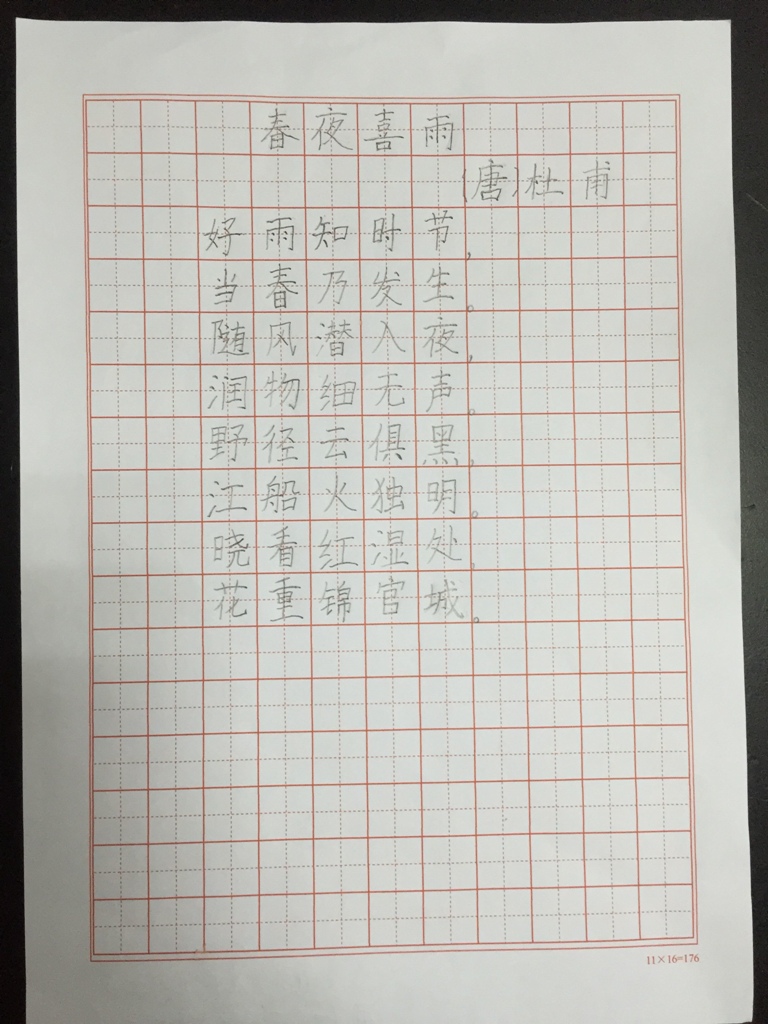 春夜喜雨
(唐)杜甫
好雨知时节,
当春乃发生。
随风潜入夜,
润物细无声。
野径云俱黑,
江船火独明。
晓看红湿处,
花重锦官城。
11×16=176